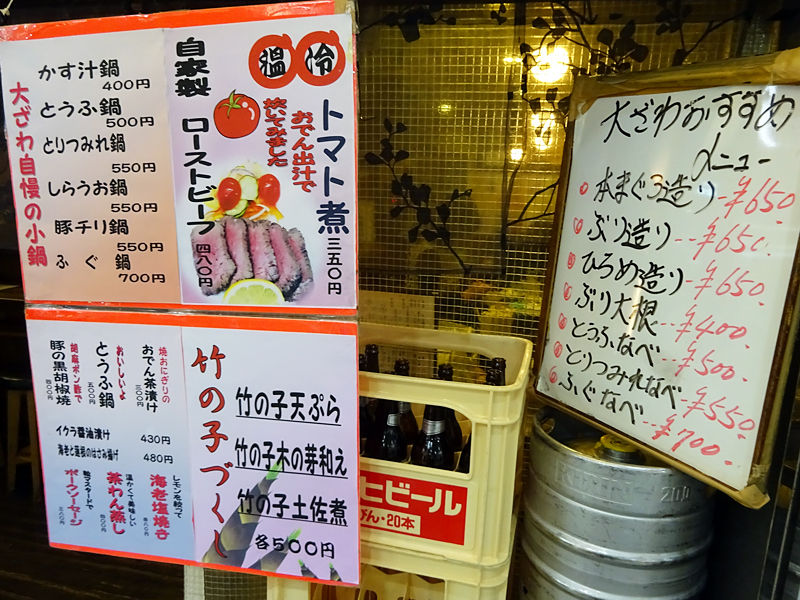 大ざわ自慢の小鍋
かす汁鍋
400円
とうふ鍋
500円
とりつみれ鍋
550円
しらうお鍋
550円
豚チリ鍋
550円
ふぐ鍋
700円
温 冷
トマト煮
三五〇円
おでん出汁で
炊いてみました
自家製
ローストビーフ
四八〇円
焼おにぎりの
おでん茶漬け
三〇〇円
おいしいよ
とうふ鍋
五〇〇円
胡麻ポン酢で
豚の黒胡椒焼
イクラ醤油漬け 430円
海老と蓮根のはさみ揚げ 480円
レモンを絞って
海老塩焼き
温かくて美味しい
茶わん蒸し
粒マスタードで
ポークソーセージ
竹の子づくし
竹の子天ぷら
竹の子木の芽和え
竹の子土佐煮
各500円
ビール
びん・20本
大ざわおすすめ
メニュー
本まぐろ造り ¥650
ぶり造り ¥650
ひろめ造り ¥650
ぶり大根 ¥400
とうふなべ ¥500
とりつみれなべ ¥550
ふぐなべ ¥700
20L